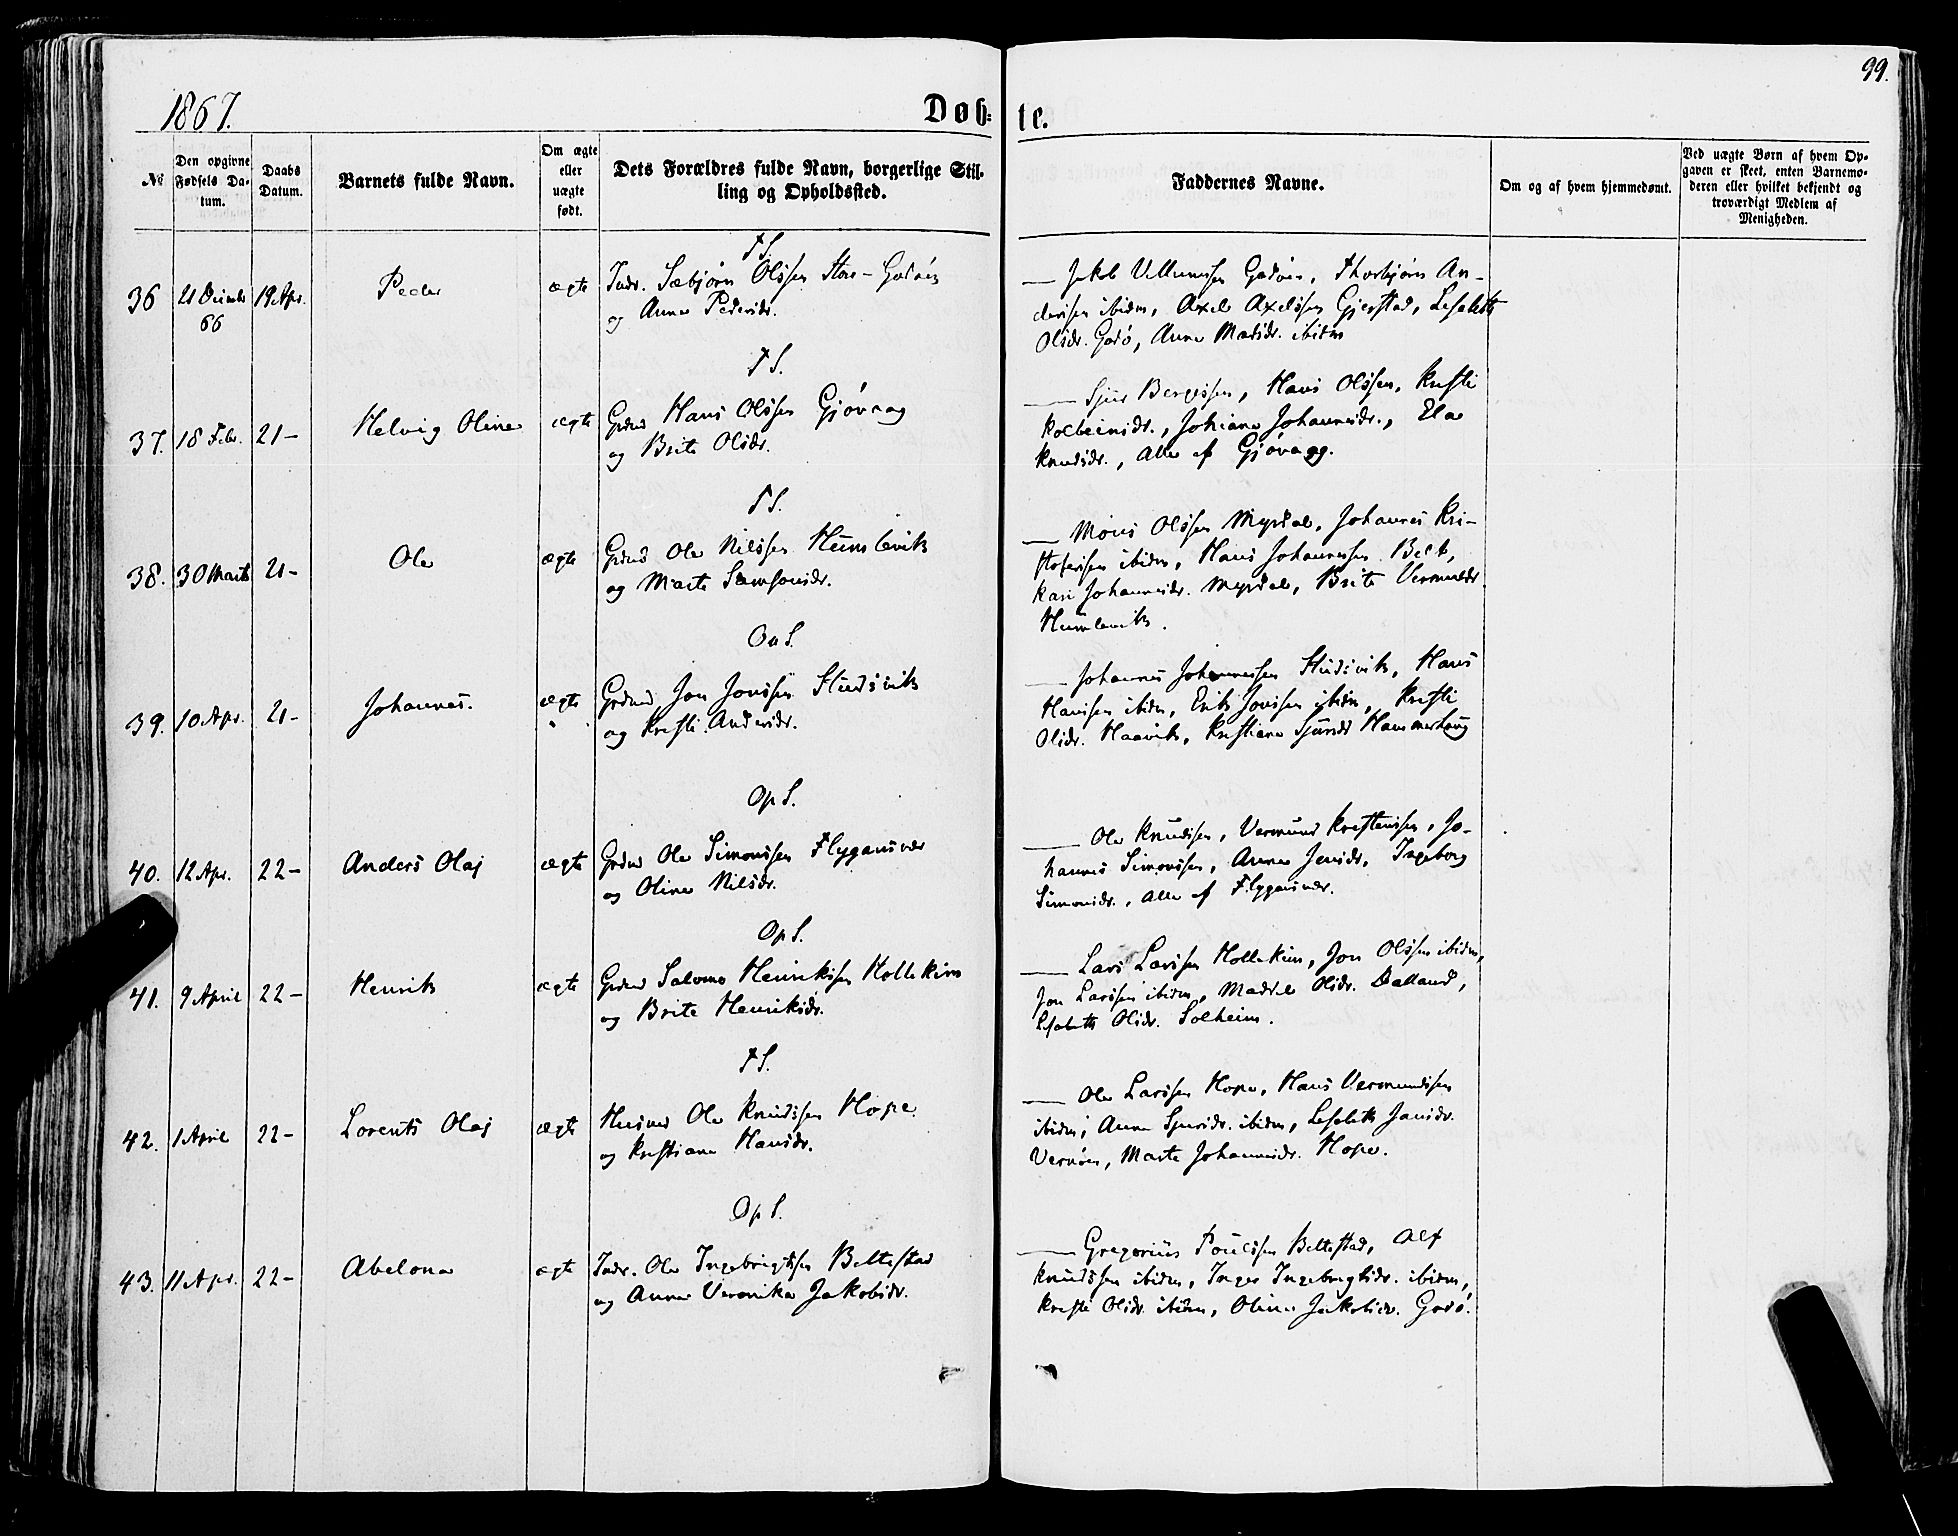 99.
1867.
Døb-
te.
№
Den opgivne
Fødsels Da-
tum.
Daabs
Datum.
Barnets fulde Navn.
Om ægte
eller
uægte
født.
Dets Forældres fulde Navn, borgerlige Stil-
ling og Opholdssted.
Faddernes Navne.
Om og af hvem hjemmedømt.
Ved uægte Børn af hvem Op-
gaven er skeet, enten Barnemo-
deren eller hvilket bekjendt og
troværdigt Medlem af
Menigheden.
FS.
36 21 Decmbr 66 19 Apr. Peder ægte Indr. Sæbjørn Olssen Store-Godøen
og Anna Pedersdr.
Jakob Villumssen Godøen, Thorbjørn An-
dersen ibidm, Axel Axelssen Gjerstad, Lisabeth
Olsdr. Godø, Anna Madsdr. ibidm
FS.
37. 18 Febr. 21- Helvig Oline ægte Grdmd Hans Olssen Gjøvaag
og Brite Olsdr.
Sjur Bergessen, Hans Olssen, Kristi
Kolbeinsdr., Johanna Johannesdr., Ela
Knudsdr., Alle af Gjøvaag.
FS.
38. 30 Marts 21- Ole ægte Grdmd Ole Nilssen Humlevik
og Marta Samsonsdr.
Mons Olssen Myrdal, Johannes Kri-
stofersen ibidm, Hans Johannessen Belt,
Kari Johannesdr. Myrdal, Brite Vermundsdr
Humlevik.
OnS.
39. 10 Apr. 21- Johannes. ægte Grdmd Jon Jonssen Studsvik
og Kristi Andersdr.
Johannes Johannessen Studsvik, Hans
Hanssen ibidm, Erik Jonssen ibidm, Kristi
Olsdr. Haavik, Kristiane Sjursdr Hammerhaug
OpS.
40. 12 Apr. 22- Anders Olaj ægte Grdmd Ole Simonssen Flygansvær
og Oline Nilsdr.
Ole Knudssen, Vermund Kristenssen, Jo-
hannes Simonssen, Anna Jensdr., Ingeborg
Simonsdr., Alle af Flygansvær.
OpS.
41. 9 April 22- Henrik ægte Grdmd Salomo Henrikssen Hollekim
og Brite Henriksdr.
Lars Larssen Hollekim, Jon Olssen ibidm,
Jon Larssen ibidm, Madsel Olsdr. Dalland,
Lisabeth Olsdr. Solheim.
FS.
42. 1 April 22- Lorents Olaj ægte Husmd Ole Knudssen Hope
og Kristiana Hansdr.
Ole Larssen Hope, Hans Vermundssen
ibidm, Anna Sjursdr. ibidm, Lisabeth Jansdr.
Vernøen, Marta Johannesdr. Hope.
OpS.
43. 11 Apr. 22- Abelona ægte Indr. Ole Ingebrigtssen Beltestad
og Anna Veronika Jakobsdr.
Gregorius Poulssen Beltestad, Alf
Knudssen ibidm, Inger Ingebrigtsdr. ibidm,
Kristi Olsdr. ibidm, Oline Jakobsdr. Godø.